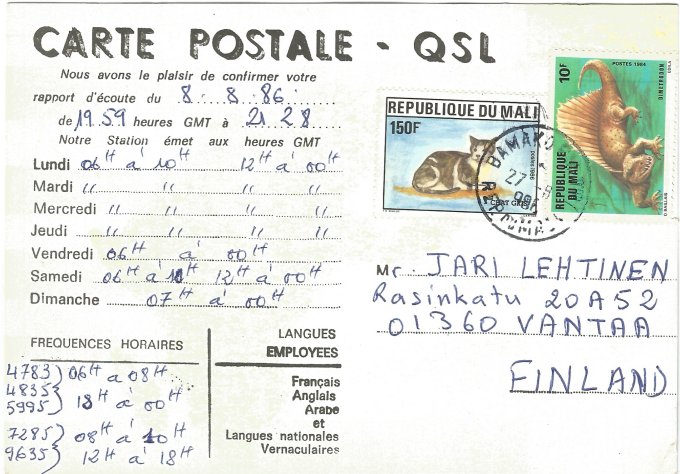 CARTE POSTALE - QSL
Nous avons le plaisir de confirmer votre
rapport d'écoute du 8. 8. 86.
de 19 59 heures GMT à 21 28
Notre Station émet aux heures GMT
Lundi 06H à 10H 12H à 00H
Mardi " " " "
Mercredi " " " "
Jeudi " " " "
Vendredi 06H à 00H
Samedi 06H à 10H 12H à 00H
Dimanche 07H à 00H
FREQUENCES HORAIRES
4783) 06H à 08H
4835)
5995) 18H à 00H
7285) 08H à 10H
9635) 12H à 18H
LANGUES
EMPLOYEES
Français
Anglais
Arabe
et
Langues nationales
Vernaculaires
REPUBLIQUE DU MALI
150F
CHAT GRIS
POSTES 1984
10F
DIMETRODON
REPUBLIQUE
DU MALI
BAMAKO
27 -8
Mr. JARI LEHTINEN
Rasinkatu 20A52
01360 VANTAA
FINLAND